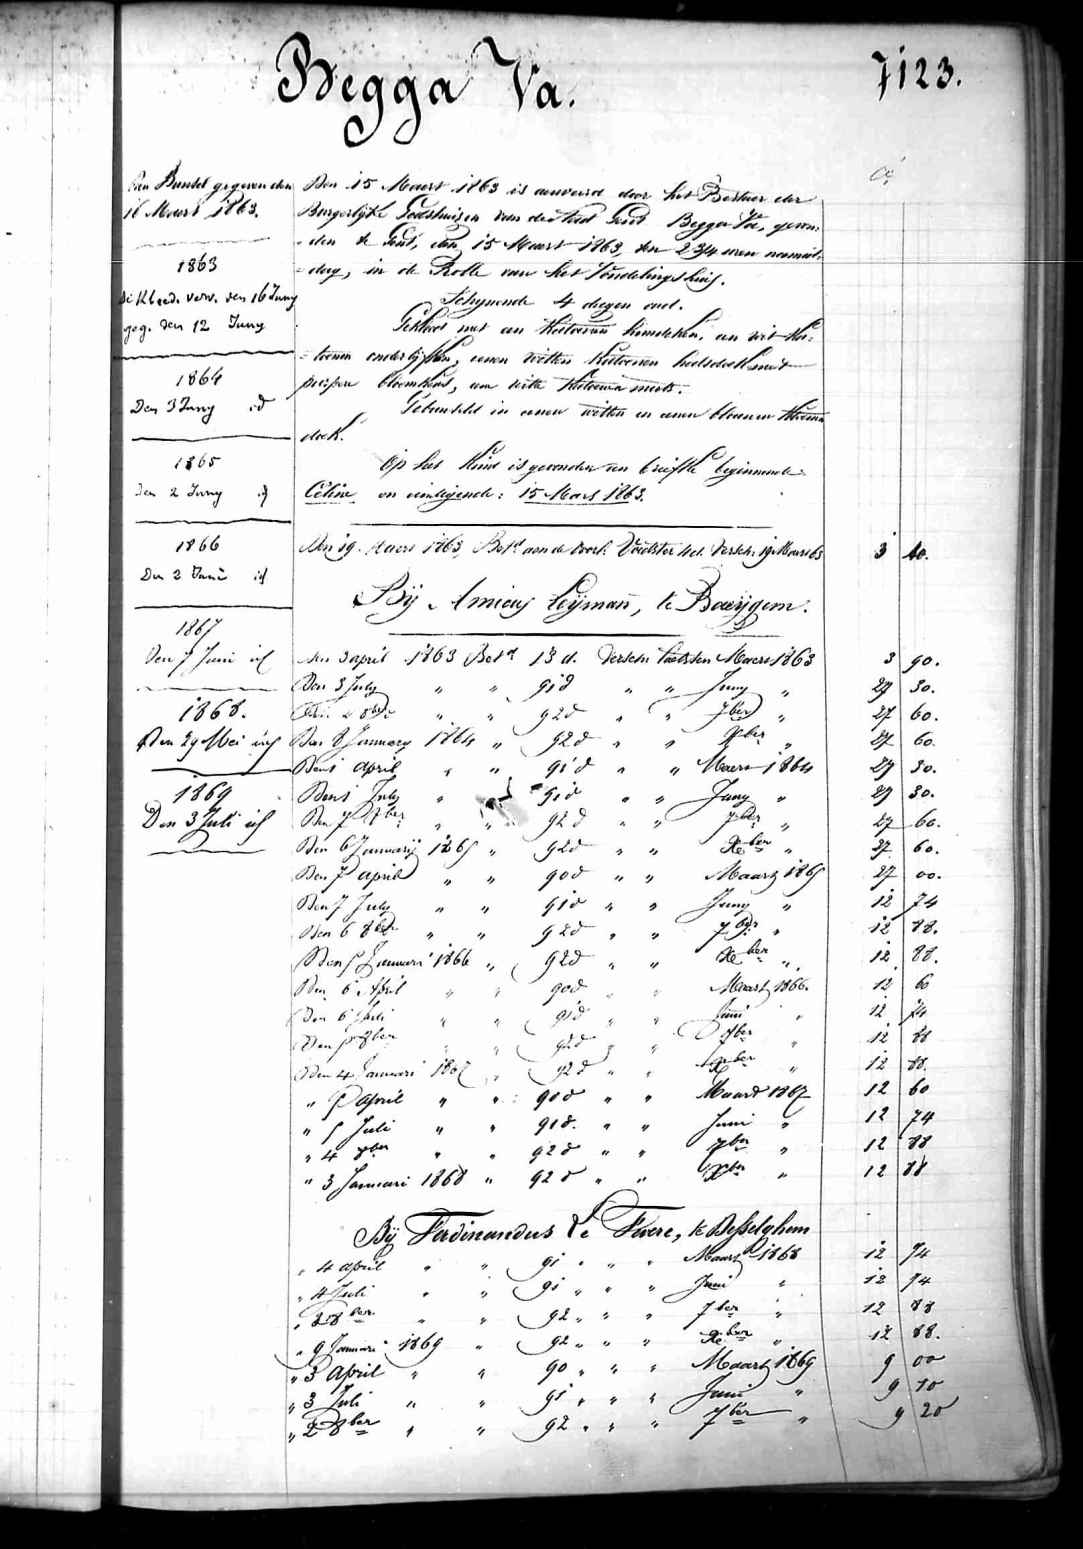 Begga Va.
7123.
Een Bundel gegeven den
16 Maert 1863.
1863
de Kleed. verv. den 16 Juny
geg. den 12 Juny
1864
Den 3 Juny id
1865
Den 2 Juny id
1866
Den 2 Juni id
1867
Den 7 Juni id
1868.
Den 29 Mei id
1869
Den 3 Juli id
Den 15 Maert 1863 is aenveerd door het Bestuer der
Burgerlijke Godshuizen van der stad Gend Begga Va, gevon:
den te Gent, den 15 Maert 1863, ten 2 3/4 uren namid:
dag, in de Rolle van het Vondelingshuis.
Schynende 4 dagen oud.
Gekleed met een Kattoenen hemdeken, een wit Kat:
toenen onderlijfken, eenen witten Kattoenen halsdoek met
peirpere bloemkens, een witte Kattoenen muts.
Gebundeld in eenen witten en eenen blauwen Kattoenen
doek.
Op het Kind is gevonden een briefke beginnende:
Céline en eindigende: 15 Mars 1863.
Den 19 Maert 1863, Betd aen de voorl. Voedster tot Versch. 19 Maert 63 3 40.
Bij Amicus Leijman, te Baeijgem.
Den 3 april 1863 Betd 13 d. Versch. laetsten Maert 1863 3 90.
Den 3 July " " 91 d " " Juny " 27 30.
Den 2 8ber " " 92 d " " 7ber " 27 60.
Den 8 January 1864 " 92 d " " Xber " 27 60.
Den 1 april " " 91 d " " Maert 1864 27 30.
Den 1 July " " 91 d " " Juny " 27 30.
Den 7 8ber " " 92 d " " 7ber " 27 60.
Den 6 Januarij 1865 " 92 d " " Xber " 27 60.
Den 7 april " " 90 d " " Maart 1865 27 00.
Den 7 July " " 91 d " " Juny " 12 74
Den 6 8ber " " 92 d " " 7ber " 12 88.
Den 5 Januari 1866 " 92 d " " Xber " 12 88.
Den 6 April " " 90 d " " Maart 1866. 12 60
Den 6 Juli " " 91 d " " Juni " 12 74
Den 5 8ber " " 92 d " " 7ber " 12 88
Den 4 Januari 1867 " 92 d " " Xber " 12 88.
" 5 april " " 90 d " " Maart 1867 12 60
" 5 Juli " " 91 d. " " Juni " 12 74
" 4 8ber " " 92 d " " 7ber " 12 88
" 3 Januari 1868 " 92 d " " Xber " 12 88
Bij Ferdinandus De Fwere, te Desselghem
" 4 april " " 91 " " " Maart 1868 12 74
" 4 Juli " " 91 " " " Juni " 12 74
" 2 8ber " " 92 " " " 7ber " 12 88
" 9 Januari 1869 " 92 " " " Xber " 12 88.
" 3 April " " 90 " " " Maart 1869 9 00
" 3 Juli " " 91 " " " Juni " 9 10
" 2 8ber " " 92 " " " 7ber " 9 20